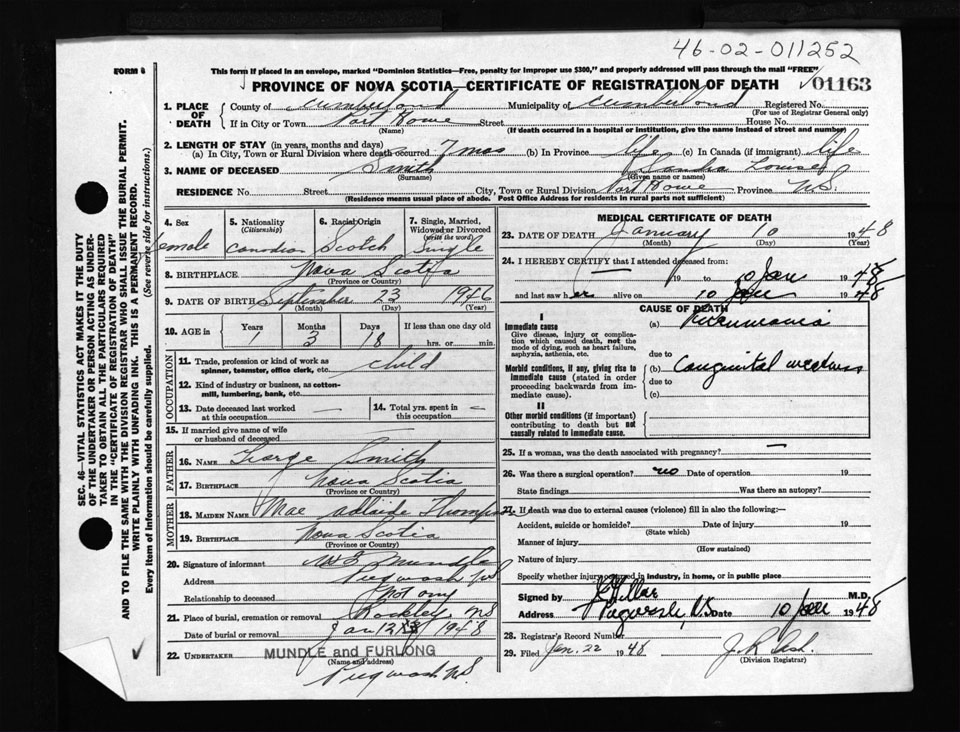 46-02-011252
FORM 8
This form if placed in an envelope, marked "Dominion Statistics—Free, penalty for improper use $300," and properly addressed will pass through the mail "FREE"
PROVINCE OF NOVA SCOTIA—CERTIFICATE OF REGISTRATION OF DEATH
01163
1. PLACE OF DEATH
County of Cumberland Municipality of Cumberland Registered No.
(For use of Registrar General only)
If in City or Town Port Howe Street House No.
(Name) (If death occurred in a hospital or institution, give the name instead of street and number)
2. LENGTH OF STAY (in years, months and days)
(a) In City, Town or Rural Division where death occurred 7 mos (b) In Province life (c) In Canada (if immigrant) life
3. NAME OF DECEASED Smith Sandra Louise
(Surname) (Given name or names)
RESIDENCE No. Street City, Town or Rural Division Port Howe Province N.S.
(Residence means usual place of abode. Post Office Address for residents in rural parts not sufficient)
4. Sex 5. Nationality 6. Racial Origin 7. Single, Married,
(Citizenship) Widowed or Divorced
(write the word)
Female Canadian Scotch Single
8. BIRTHPLACE Nova Scotia
(Province or Country)
9. DATE OF BIRTH September 23 1946
(Month) (Day) (Year)
10. AGE in Years Months Days If less than one day old
1 3 18 hrs. or min.
OCCUPATION
11. Trade, profession or kind of work as
spinner, teamster, office clerk, etc. child
12. Kind of industry or business, as cotton-
mill, lumbering, bank, etc.
13. Date deceased last worked
at this occupation —
14. Total yrs. spent in
this occupation —
15. If married give name of wife
or husband of deceased —
FATHER
16. NAME George Smith
17. BIRTHPLACE Nova Scotia
(Province or Country)
MOTHER
18. MAIDEN NAME Mae Adlaide Thompson
19. BIRTHPLACE Nova Scotia
(Province or Country)
20. Signature of informant Mundle
Address Pugwash NS
Relationship to deceased not any
21. Place of burial, cremation or removal Rockley, NS
Date of burial or removal Jan 12 1948
22. UNDERTAKER MUNDLE and FURLONG
(Name and address)
Pugwash NS
MEDICAL CERTIFICATE OF DEATH
23. DATE OF DEATH January 10 1948
(Month) (Day) (Year)
24. I HEREBY CERTIFY that I attended deceased from:
19 to 10 Jan 1948
and last saw her alive on 10 Jan 1948
CAUSE OF DEATH
I
Immediate cause
Give disease, injury or complication which caused death, not the mode of dying, such as heart failure, asphyxia, asthenia, etc.
(a) Pneumonia
due to
Morbid conditions, if any, giving rise to immediate cause (stated in order proceeding backwards from immediate cause).
(b) Congenital weakness
due to
(c)
II
Other morbid conditions (if important) contributing to death but not causally related to immediate cause.
25. If a woman, was the death associated with pregnancy? —
26. Was there a surgical operation? no Date of operation 19
State findings Was there an autopsy?
27. If death was due to external causes (violence) fill in also the following:—
Accident, suicide or homicide? Date of injury 19
(State which)
Manner of injury
(How sustained)
Nature of injury
Specify whether injury occurred in industry, in home, or in public place
Signed by M.D.
Address Pugwash, N.S. Date 10 Jan 1948
28. Registrar's Record Number
29. Filed Jan. 22 1948 J. R. Ash.
(Division Registrar)
SEC. 46—VITAL STATISTICS ACT MAKES IT THE DUTY
OF THE UNDERTAKER OR PERSON ACTING AS UNDER-
TAKER TO OBTAIN ALL THE PARTICULARS REQUIRED
IN THE "CERTIFICATE OF REGISTRATION OF DEATH"
AND TO FILE THE SAME WITH THE DIVISION REGISTRAR WHO SHALL ISSUE THE BURIAL PERMIT.
WRITE PLAINLY WITH UNFADING INK. THIS IS A PERMANENT RECORD.
Every item of information should be carefully supplied. (See reverse side for instructions.)